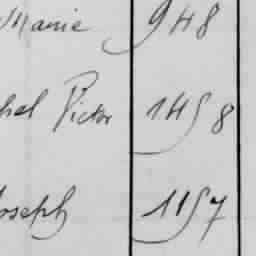 Marie 948
hel Victor 1458
Joseph 1157